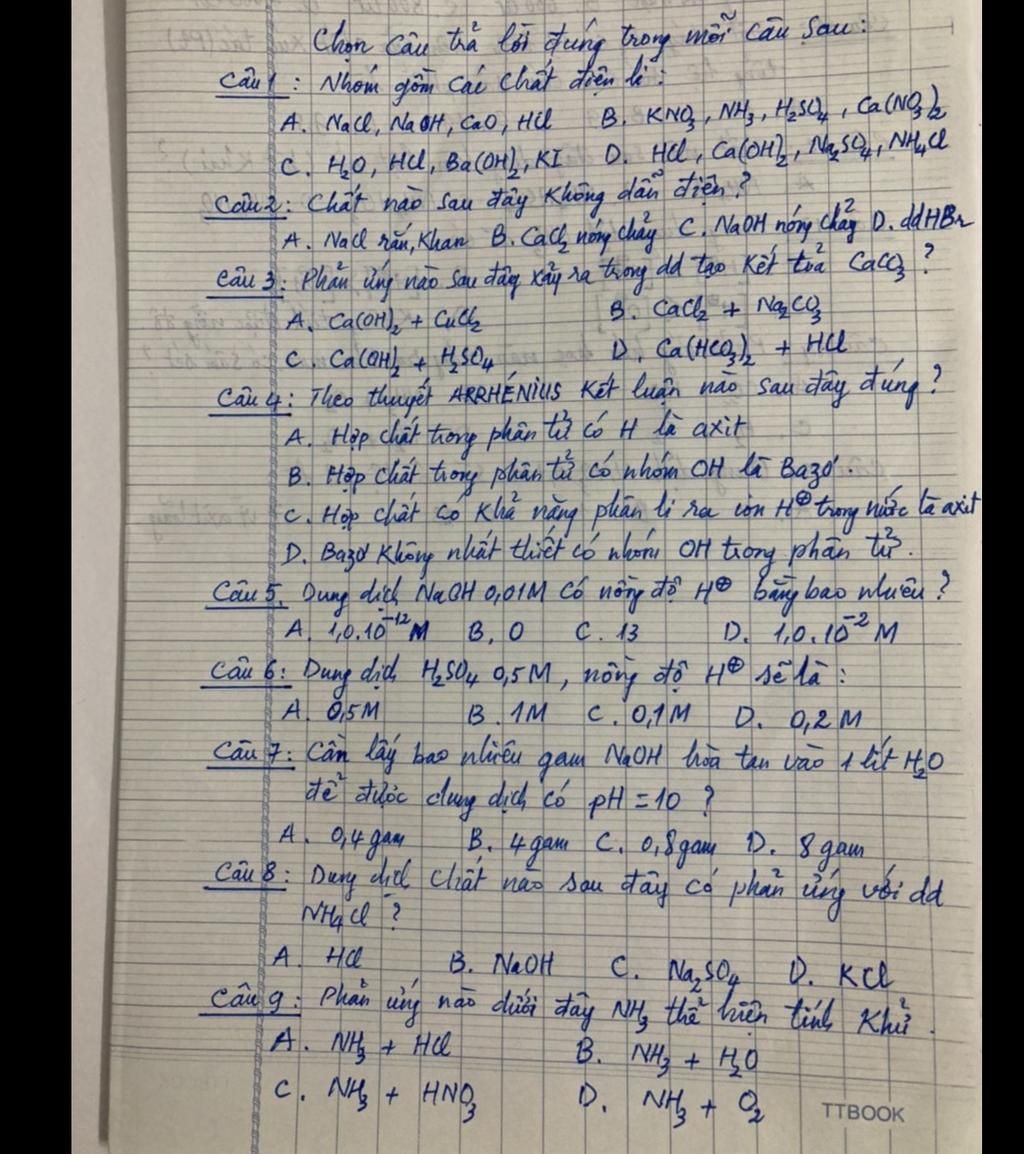 Chọn câu trả lời đúng trong mỗi câu sau:
Câu 1: Nhóm gồm các chất điện li:
A. NaCl, NaOH, CaO, HCl B. KNO₃, NH₃, H₂SO₄, Ca(NO₃)₂
C. H₂O, HCl, Ba(OH)₂, KI D. HCl, Ca(OH)₂, Na₂SO₄, NH₄Cl
Câu 2: Chất nào sau đây không dẫn điện?
A. NaCl rắn, khan B. CaCl₂ nóng chảy C. NaOH nóng chảy D. dd HBr
Câu 3: Phản ứng nào sau đây xảy ra trong dd tạo kết tủa CaCO₃?
A. Ca(OH)₂ + CuCl₂ B. CaCl₂ + Na₂CO₃
C. Ca(OH)₂ + H₂SO₄ D. Ca(HCO₃)₂ + HCl
Câu 4: Theo thuyết ARRHÉNIUS kết luận nào sau đây đúng?
A. Hợp chất trong phân tử có H là axit
B. Hợp chất trong phân tử có nhóm OH là Bazơ.
C. Hợp chất có khả năng phân li ra ion H⊕ trong nước là axit
D. Bazơ không nhất thiết có nhóm OH trong phân tử.
Câu 5. Dung dịch NaOH 0,01M có nồng độ H⊕ bằng bao nhiêu?
A. 1,0.10⁻¹² M B. 0 C. 13 D. 1,0.10⁻² M
Câu 6: Dung dịch H₂SO₄ 0,5M, nồng độ H⊕ sẽ là:
A. 0,5M B. 1M C. 0,1M D. 0,2M
Câu 7: Cần lấy bao nhiêu gam NaOH hòa tan vào 1 lít H₂O
để được dung dịch có pH = 10?
A. 0,4 gam B. 4 gam C. 0,8 gam D. 8 gam
Câu 8: Dung dịch chất nào sau đây có phản ứng với dd
NH₄Cl?
A. HCl B. NaOH C. Na₂SO₄ D. KCl
Câu 9: Phản ứng nào dưới đây NH₃ thể hiện tính khử.
A. NH₃ + HCl B. NH₃ + H₂O
C. NH₃ + HNO₃ D. NH₃ + O₂
TTBOOK